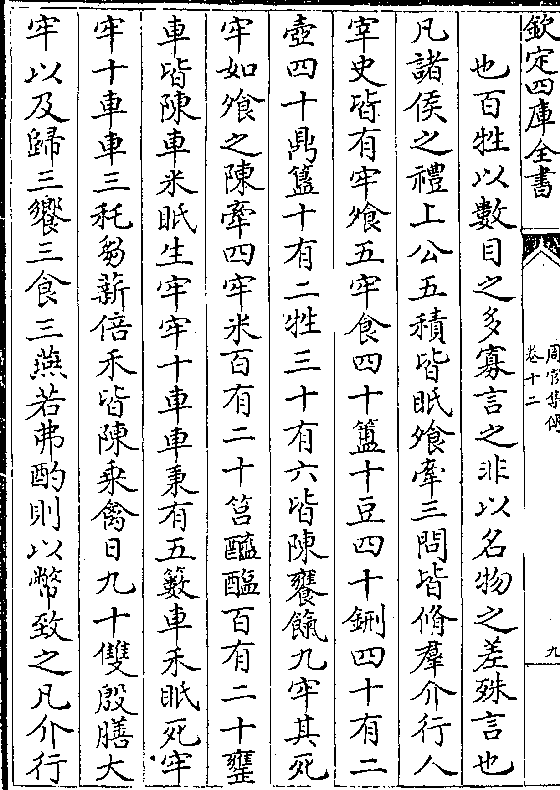 欽定四庫全書
周官集傳
卷十二
九
也百牲以數目之多寡言之非以名物之差殊言也
凡諸侯之禮上公五積皆眡飱牽三問皆脩羣介行人
宰史皆有牢飱五牢食四十簠十豆四十鉶四十有二
壺四十鼎簋十有二牲三十有六皆陳饔餼九牢其死
牢如飱之陳牽四牢米百有二十筥醯醢百有二十罋
車皆陳車米眡生牢牢十車車秉有五籔車禾眡死牢
牢十車車三秅芻薪倍禾皆陳乗禽日九十雙殷膳大
牢以及歸三饗三食三燕若弗酌則以幣致之凡介行